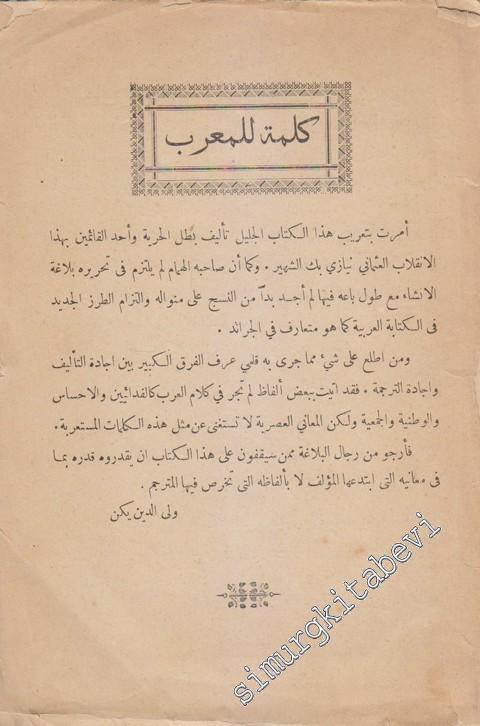 كلمة للمعرب
أمرت بتعريب هذا الكتاب الجليل تأليف بطل الحرية وأحد القائمين بهذا
الانقلاب العثماني نيازي بك الشهير . وكما أن صاحبه الهمام لم يلتزم فى تحريره بلاغة
الانشاء مع طول باعه فيها لم أجد بداً من النسج على منواله والتزام الطرز الجديد
فى الكتابة العربية كما هو متعارف في الجرائد .
ومن اطلع على شئ مما جرى به قلمي عرف الفرق الكبير بين اجادة التأليف
واجادة الترجمة . فقد اتيت ببعض ألفاظ لم تجر في كلام العرب كالفدائيين والاحساس
والوطنية والجمعية ولكن المعاني العصرية لا تستغنى عن مثل هذه الكلمات المستعربة .
فأرجو من رجال البلاغة ممن سيقفون على هذا الكتاب ان يقدروه قدره بما
فى معانيه التى ابتدعها المؤلف لا بألفاظه التى تخرص فيها المترجم .
ولى الدين يكن
simurgkitabevi